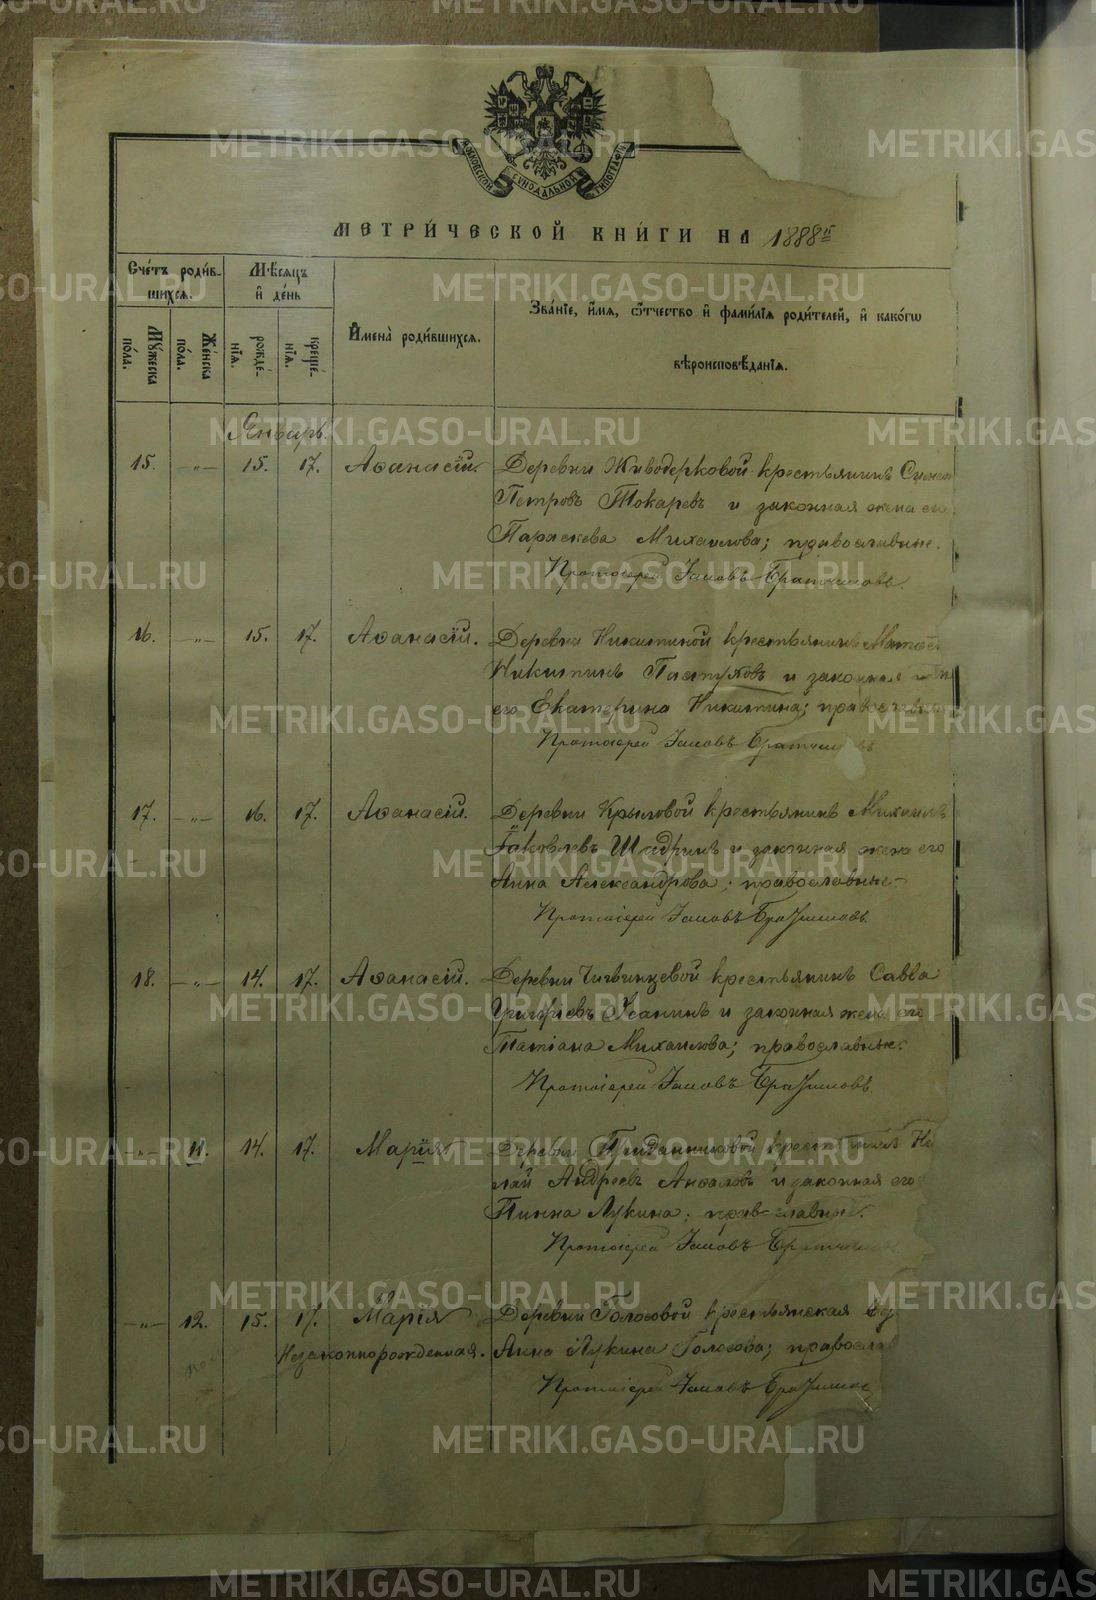 МОСКОВСКОЙ СѴНОДАЛЬНОЙ ТИПОГРАФІИ
МЕТРИ́ЧЕСКОЙ КНИ́ГИ НА 1888й
Сче́тъ роди́в-
шихся.
Мѣ́сяцъ
и҆ де́нь
Мꙋ́жеска
по́ла.
Же́нска
по́ла.
рожде́-
нїя.
креще́-
нїя.
И҆мена̀ роди́вшихся.
Зва́нїе, и҆́мя, ѻ҆́тчество и҆ фами́лїя роди́телей, и҆ како́гѡ
вѣроисповѣ́данїя.
Январь.
15. —„— 15. 17. Аѳанасій. Деревни Живодерковой крестьянинъ
Петровъ Токаревъ и законная жена его
Параскева Михаилова; православные.
Протоіерей Іаковъ Братчиковъ.
16. —„— 15. 17. Аѳанасій. Деревни Никитиной крестьянинъ
Никитинъ Пастуховъ и законная
его Екатерина Никитина; православные
Протоіерей Іаковъ Братчиковъ
17. —„— 16. 17. Аѳанасій. Деревни Крыловой крестьянинъ Михаилъ
Іаковлевъ Шадринъ и законная жена его
Анна Александрова; православные
Протоіерей Іаковъ Братчиковъ.
18. —„— 14. 17. Аѳанасій. Деревни Чигвинцевой крестьянинъ Савва
Григорьевъ и законная жена его
Татіана Михаилова; православные.
Протоіерей Іаковъ Братчиковъ.
—„— 11. 14. 17. Марія Деревни Приданниковой крестьянинъ Ни
лай Андреевъ и законная его
Пинна Лукина; православные.
Протоіерей Іаковъ Братчиковъ
—„— 12. 15. 17. Марія Деревни Голосовой крестьянская
Незаконнорожденная. Анна Лукина Голосова; православ
Протоіерей Іаковъ
METRIKI.GASO-URAL.RU